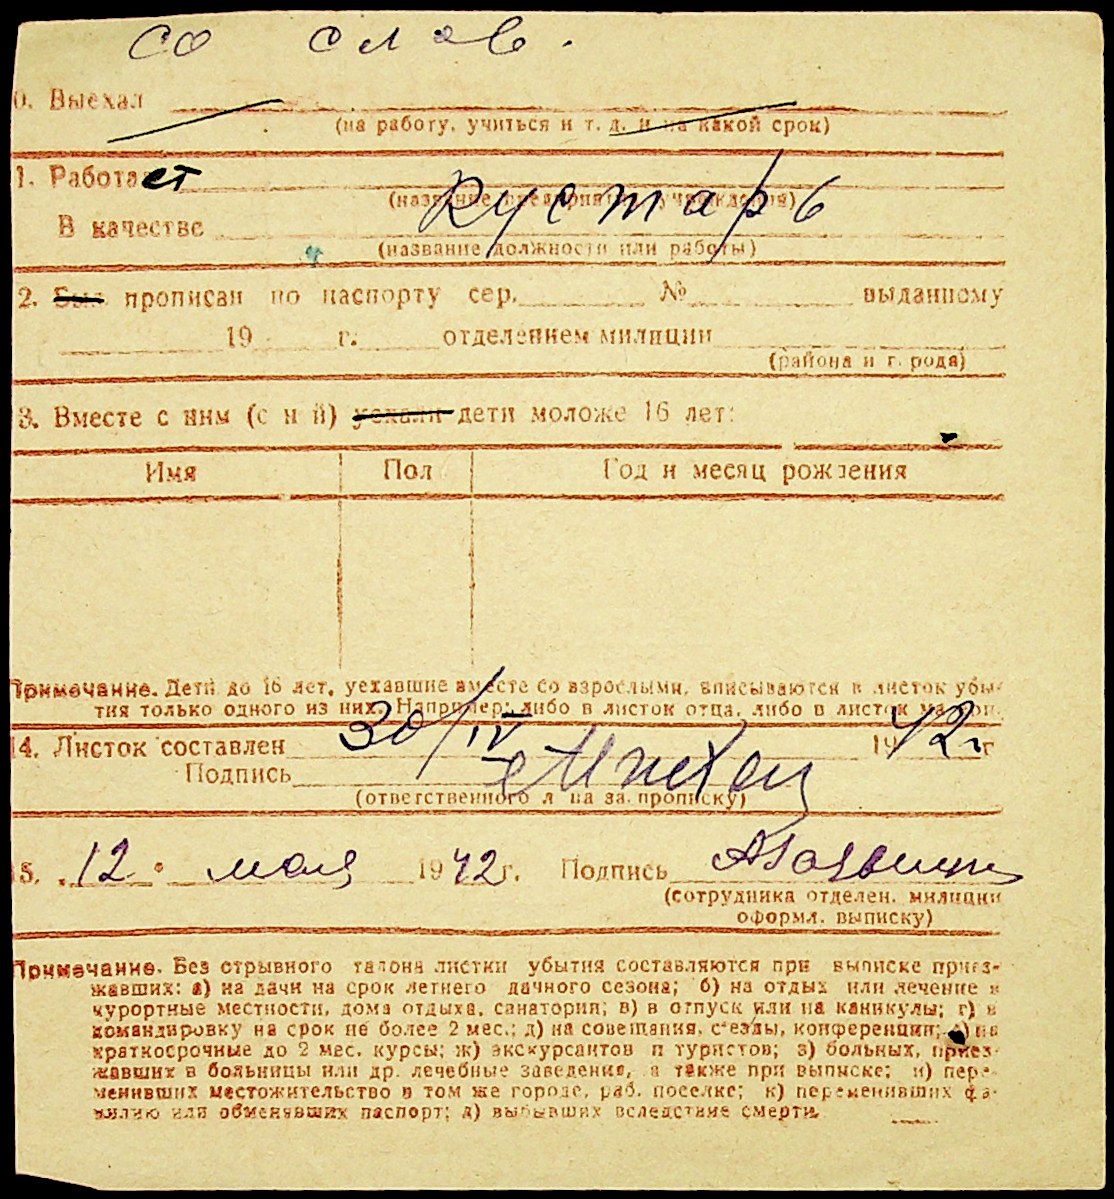 со слов.
0. Выехал
(на работу, учиться и т. д. и на какой срок)
1. Работает
Кустарь
(название предприятия, учреждения)
В качестве
(название должности или работы)
2. Был прописан по паспорту сер. № выданному
19 г. отделением милиции
(района и г. рода)
3. Вместе с ним (с н й) уехали дети моложе 16 лет:
Имя Пол Год и месяц рождения
Примечание. Дети до 16 лет, уехавшие вместе со взрослыми, вписываются в листок убы-
тия только одного из них. Например: либо в листок отца, либо в листок матери.
14. Листок составлен 30/IV 1942 г
Подпись
(ответственного л ца за прописку)
15. 12 мая 1942 г. Подпись
(сотрудника отделен. милиции
оформл. выписку)
Примечание. Без отрывного талона листки убытия составляются при выписке приез-
жавших: а) на дачи на срок летнего дачного сезона; б) на отдых или лечение в
курортные местности, дома отдыха, санатории; в) в отпуск или на каникулы; г) в
командировку на срок не более 2 мес.; д) на совещания, с'езды, конференции; е) на
краткосрочные до 2 мес. курсы; ж) экскурсантов и туристов; з) больных, приез-
жавших в больницы или др. лечебные заведения, а также при выписке; и) пере-
менивших местожительство в том же городе, раб. поселке; к) переменивших фа-
милию или обменявших паспорт; л) выбывших вследствие смерти.